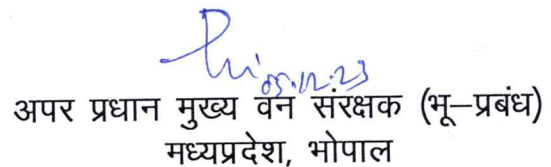 05.12.23
अपर प्रधान मुख्य वन संरक्षक (भू–प्रबंध)
मध्यप्रदेश, भोपाल